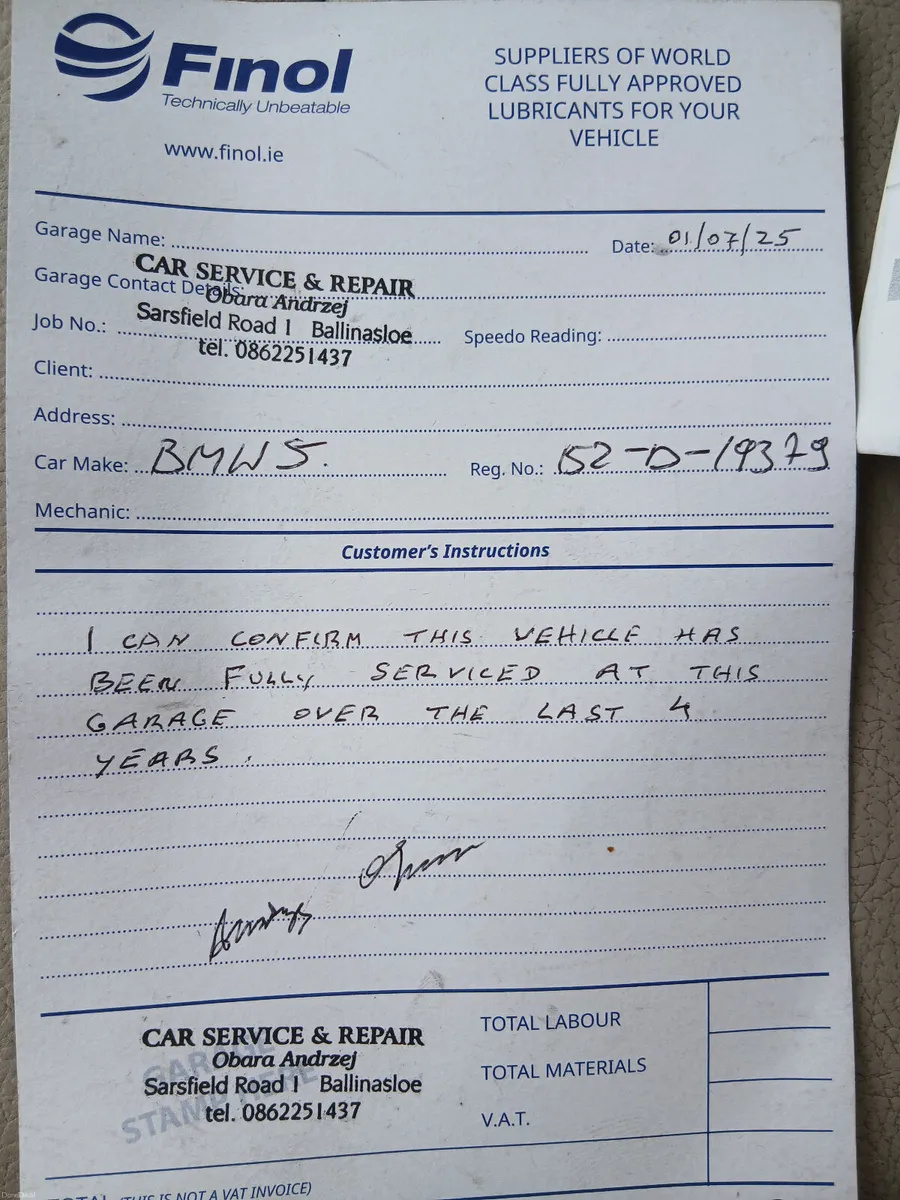 Finol
Technically Unbeatable
www.finol.ie
SUPPLIERS OF WORLD
CLASS FULLY APPROVED
LUBRICANTS FOR YOUR
VEHICLE
Garage Name:
Date: 01/07/25
Garage Contact Details:
CAR SERVICE & REPAIR
Obara Andrzej
Sarsfield Road 1 Ballinasloe
tel. 0862251437
Job No.:
Speedo Reading:
Client:
Address:
Car Make: BMW 5.
Reg. No.: 152-D-19379
Mechanic:
Customer's Instructions
I CAN CONFIRM THIS VEHICLE HAS
BEEN FULLY SERVICED AT THIS
GARAGE OVER THE LAST 4
YEARS.
CAR SERVICE & REPAIR
Obara Andrzej
Sarsfield Road 1 Ballinasloe
tel. 0862251437
GARAGE
STAMP HERE
TOTAL LABOUR
TOTAL MATERIALS
V.A.T.
TOTAL (THIS IS NOT A VAT INVOICE)
DoneDeal